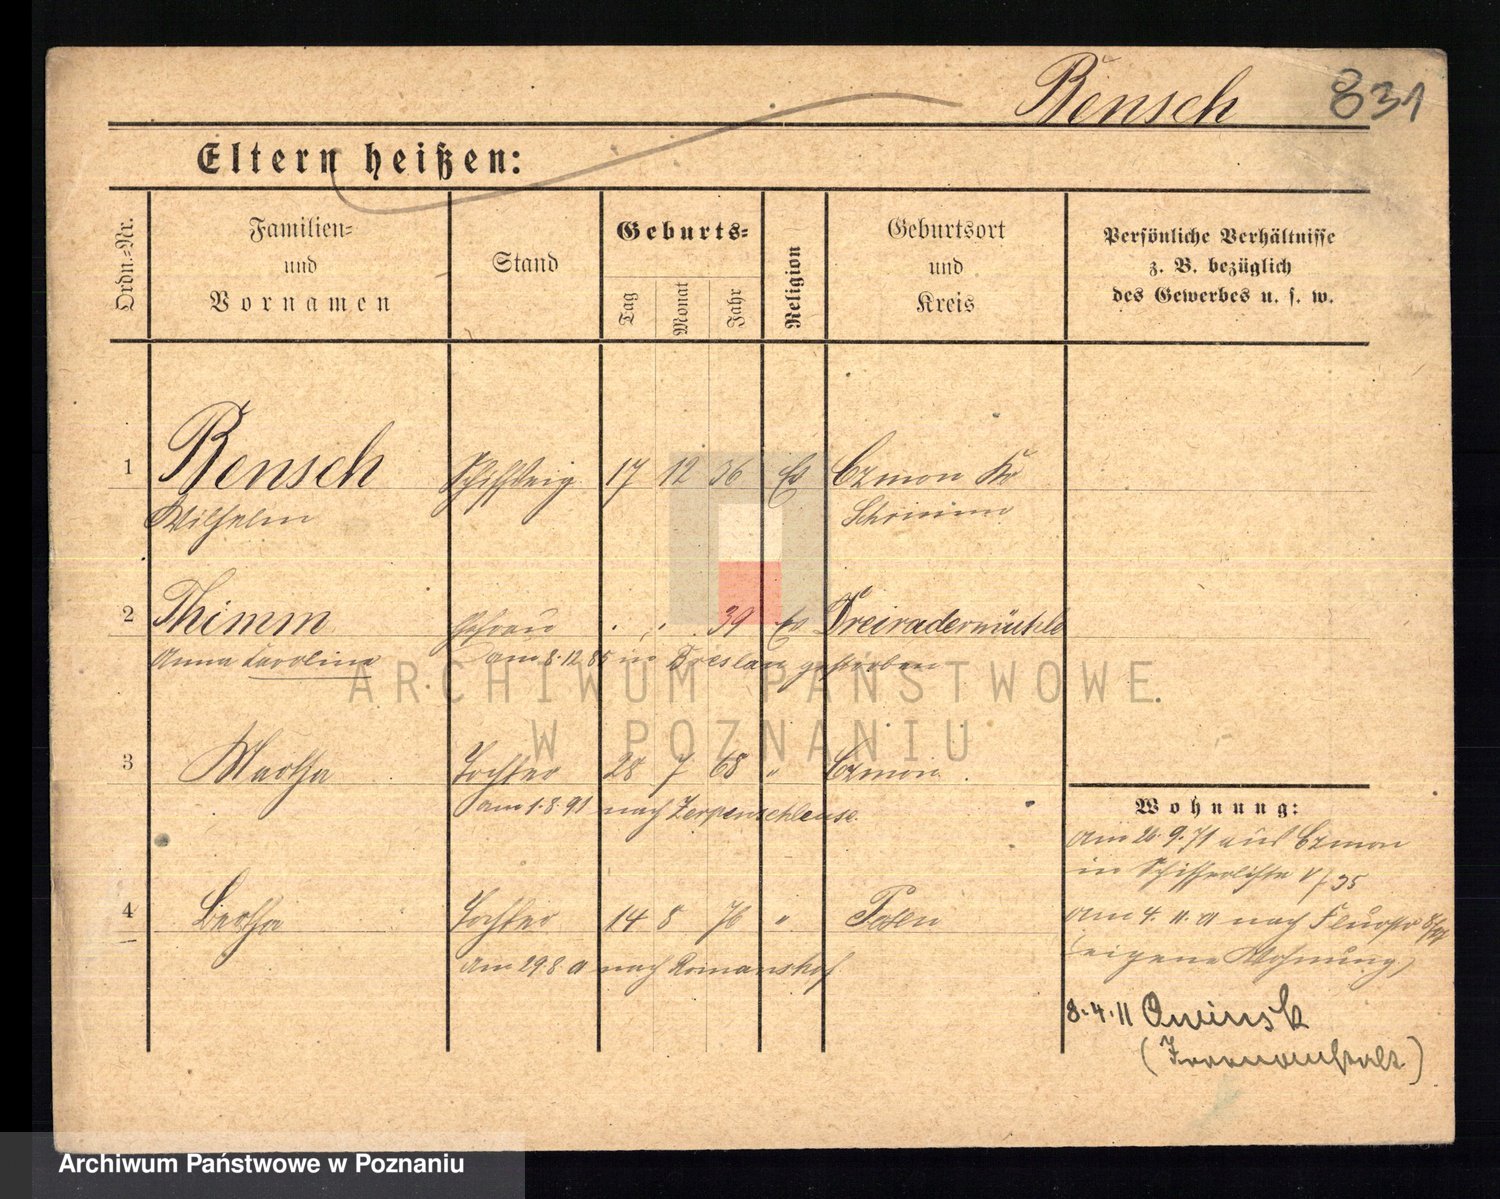 Bensch 831
Eltern heißen:
Ordn.-Nr.
Familien-
und
Vornamen
Stand
Geburts-
Tag
Monat
Jahr
Religion
Geburtsort
und
Kreis
Persönliche Verhältnisse
z. B. bezüglich
des Gewerbes u. s. w.
1 Bensch 17 12 36 Ev Czmon Kr
Wilhelm Schrimm
2 Thimm Ehefrau . . 39 Ev Dreiradermühle
Anna Karoline am 8.12.85 in Breslau gestorben
ARCHIWUM PAŃSTWOWE
W POZNANIU
3 Martha Tochter 28 7 68 " Czmon
am 1.8.91 nach Zerpenschleuse
4 Bertha Tochter 14 8 76 " Posen
am 29 8 nach Romanshof
Wohnung:
am 26.9.71 aus Czmon
in Schifferliste V/35
am 4. nach
(eigene Wohnung)
8.4.11 Owinsk
(Irrenanstalt)
Archiwum Państwowe w Poznaniu